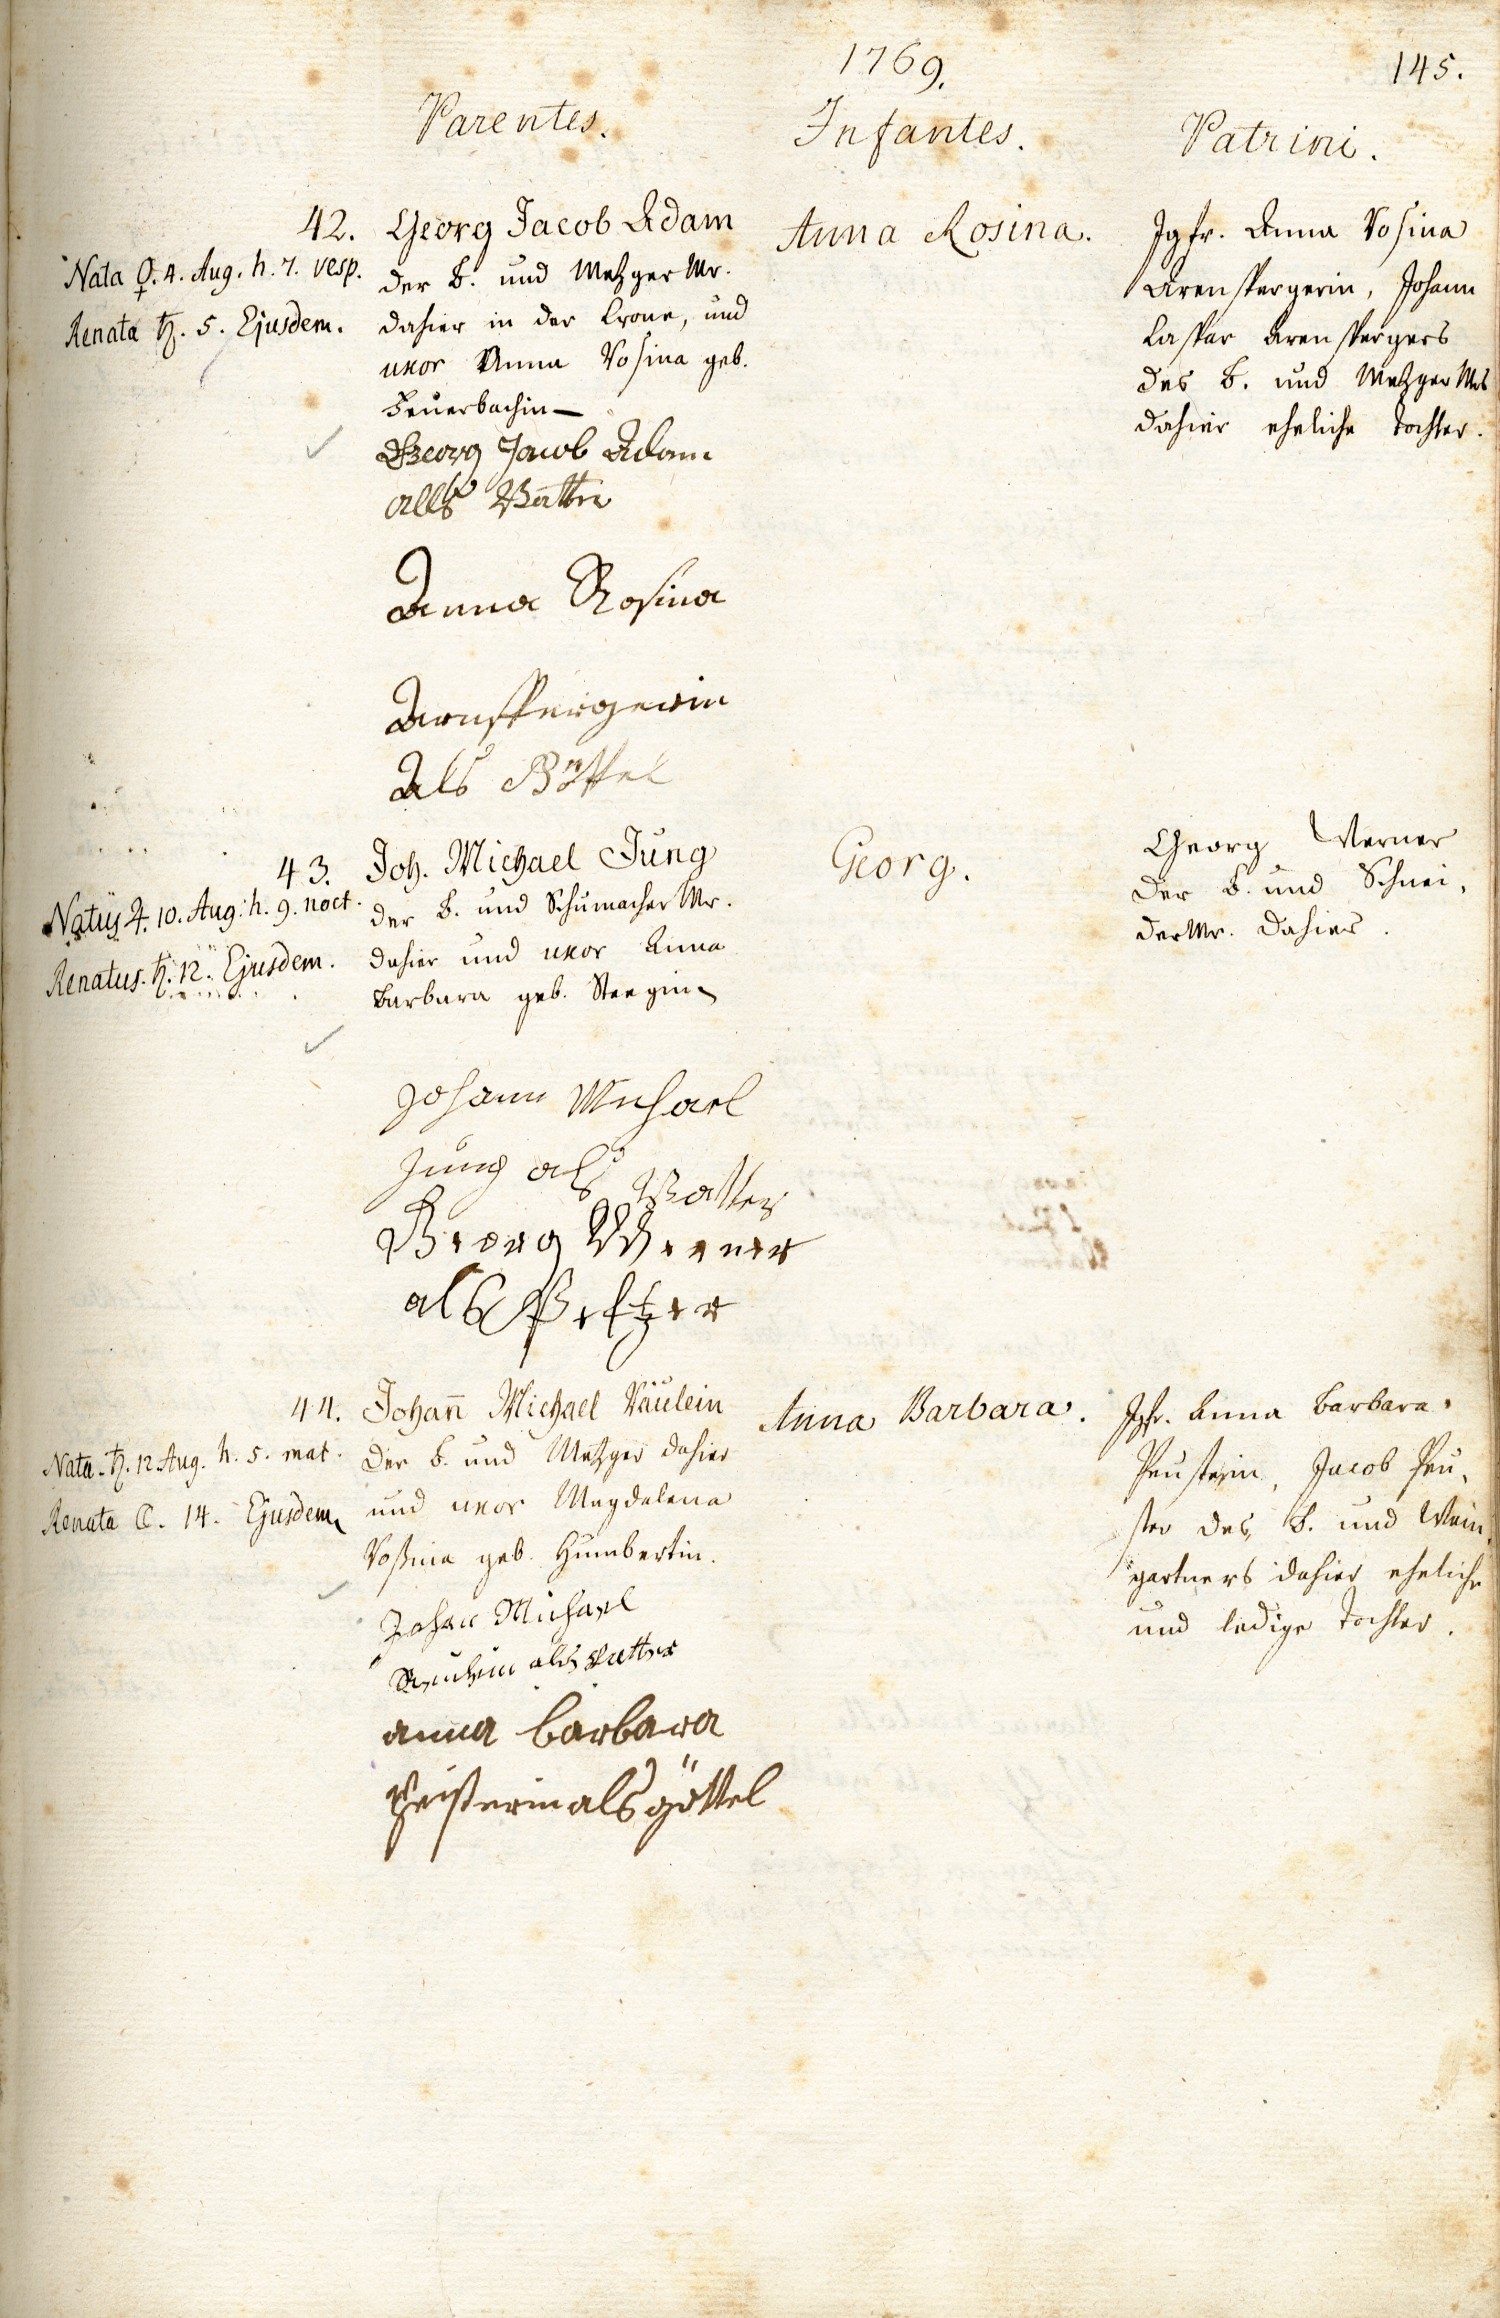 1769.
145.
Parentes.
Infantes.
Patrini.
42.
Nata ♀. 4. Aug. h. 7. vesp.
Renata ♄. 5. Ejusdem.
Georg Jacob Adam
der B. und Metzger Mr.
dahier in der Crone, und
uxor Anna Rosina geb.
Feuerbachin
Georg Jacob Adam
alls Vatter
Anna Rosina
Arnspergerin
Als
Anna Rosina.
Jgfr. Anna Rosina
Arenspergerin, Johann
Caspar Arenspergers
des B. und Metzger Mrs
dahier eheliche Tochter.
43.
Natus ♃. 10. Aug. h. 9. noct.
Renatus ♄. 12. Ejusdem.
Joh. Michael Jung
der B. und Schumacher Mr.
dahier und uxor Anna
Barbara geb. Steegin
Johann Michael
Jung als Vatter
Georg Werner
als Petzer
Georg.
Georg Werner
der B. und Schnei,
der Mr. dahier.
44.
Nata ♄. 12 Aug. h. 5. mat.
Renata ☾. 14. Ejusdem
Johañ Michael Räulein
der B. und Metzger dahier
und uxor Magdalena
Rosina geb. Humbertin.
Johan Michael
als Vatter
anna barbara
als göttel
Anna Barbara.
Jgfr. Anna Barbara
Jacob
des B. und Wein,
gartners dahier eheliche
und ledige Tochter.